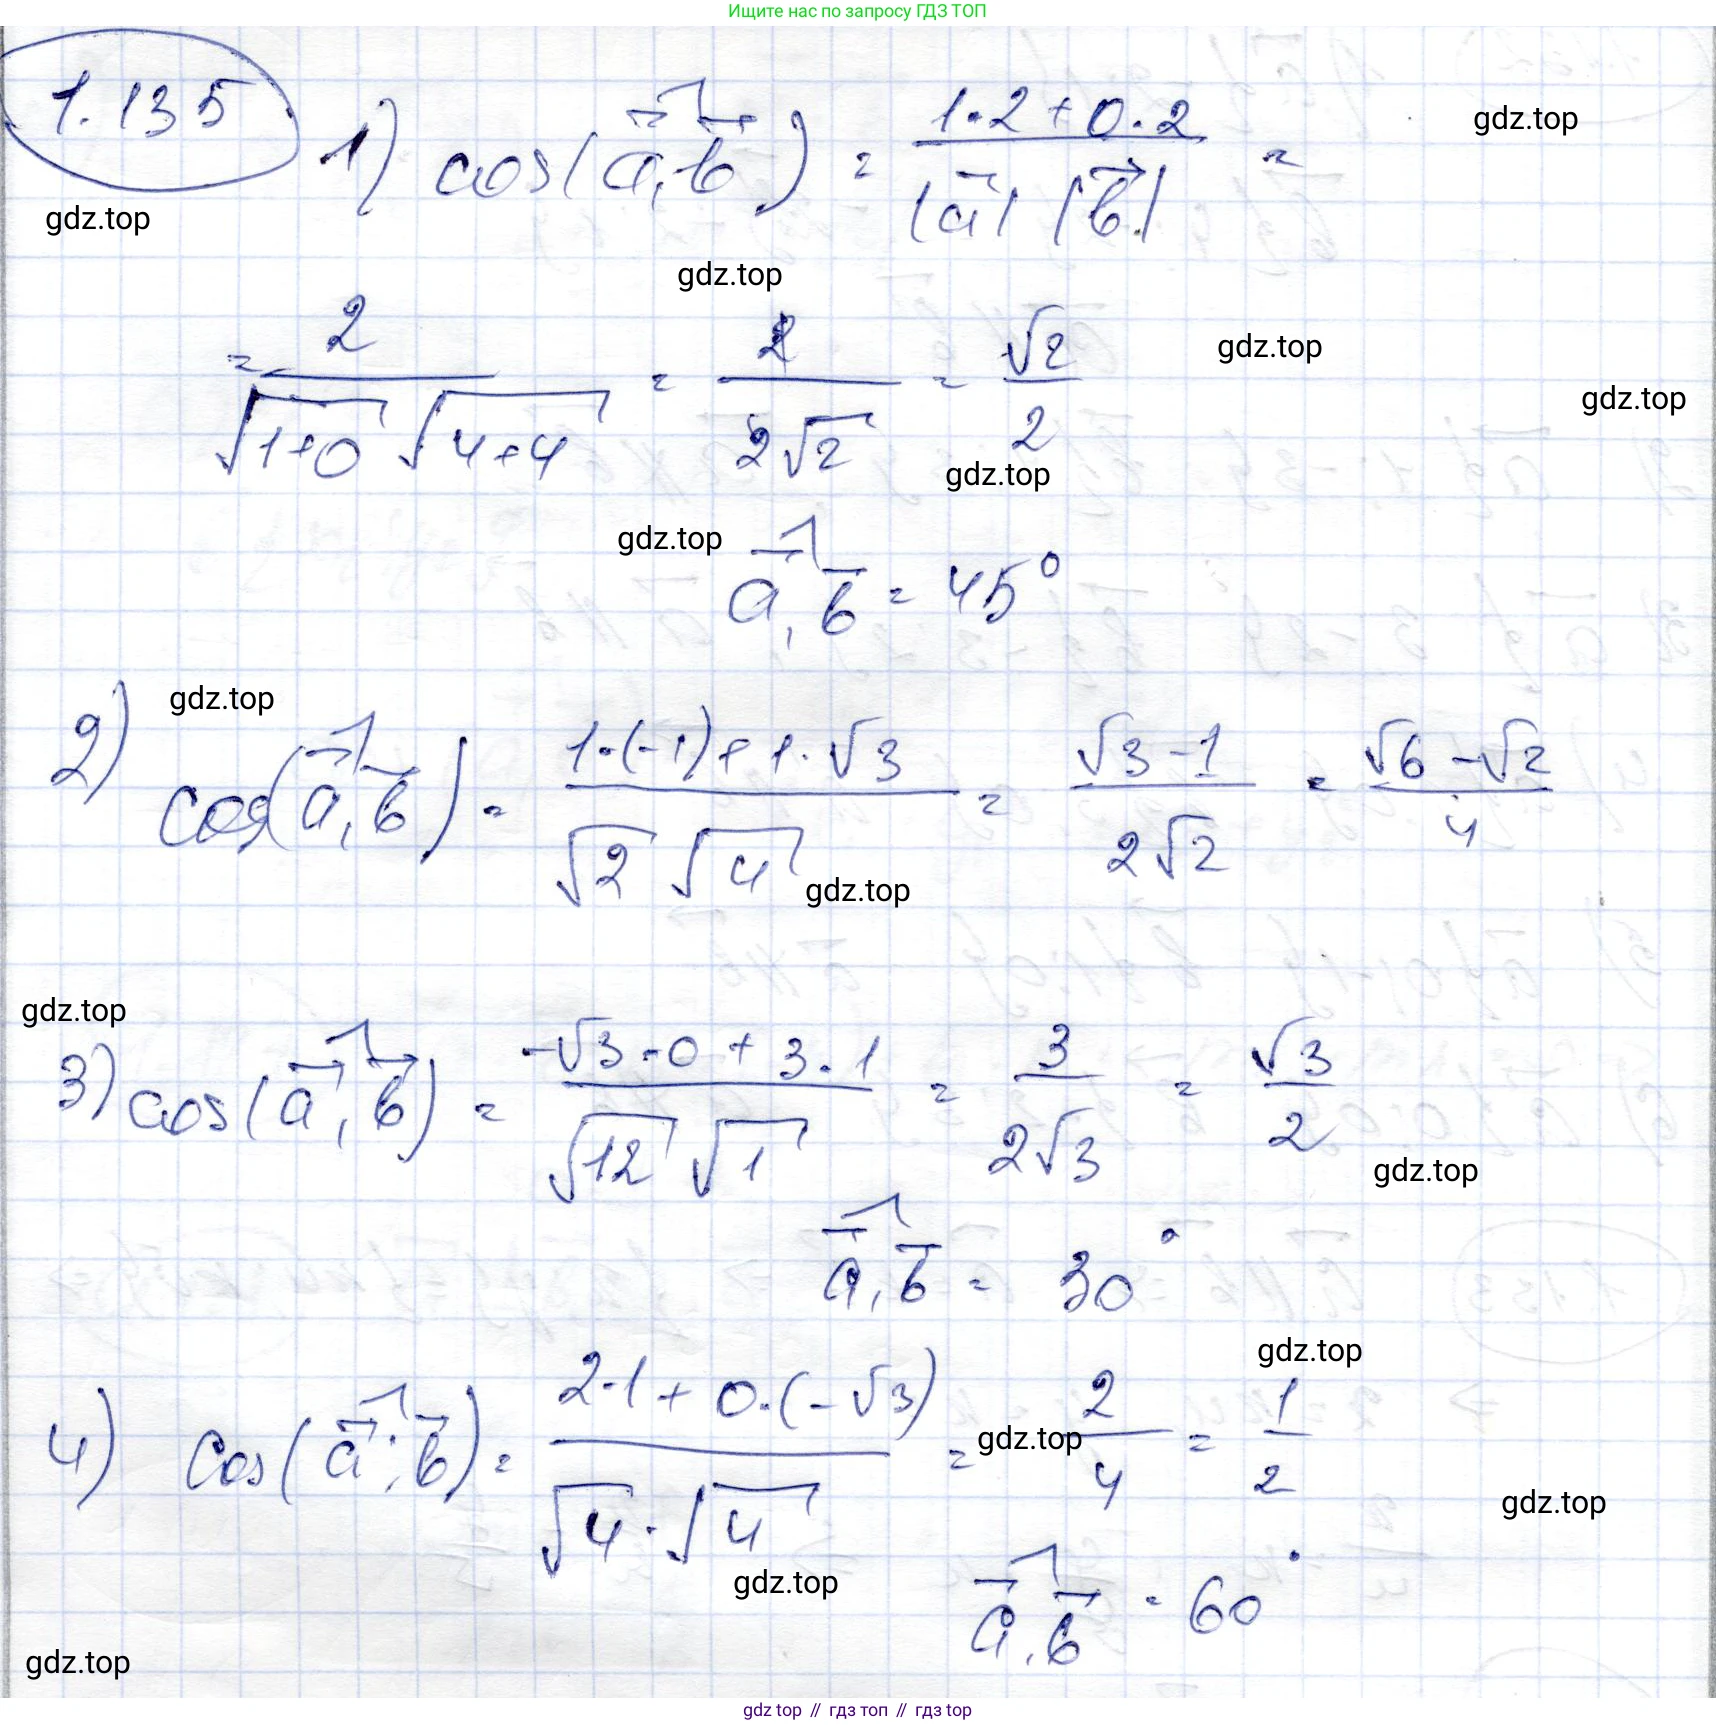 Ищите нас по запросу ГДЗ ТОП
1.135
1) cos(a, b) = (1·2 + 0·2) / (|a| |b|) =
gdz.top
gdz.top
gdz.top
= 2 / (√(1+0) √(4+4)) = 2 / (2√2) = √2 / 2
gdz.top
gdz.top
gdz.top
gdz.top
a, b = 45°
gdz.top
2) cos(a, b) = (1·(-1) + 1·√3) / (√2 √4) = (√3 - 1) / (2√2) = (√6 - √2) / 4
gdz.top
gdz.top
3) cos(a, b) = (-√3·0 + 3·1) / (√12 √1) = 3 / (2√3) = √3 / 2
gdz.top
a, b = 30°
gdz.top
4) cos(a; b) = (2·1 + 0·(-√3)) / (√4 · √4) = 2 / 4 = 1 / 2
gdz.top
gdz.top
gdz.top
a, b = 60°
gdz.top
gdz.top // гдз топ // гдз top